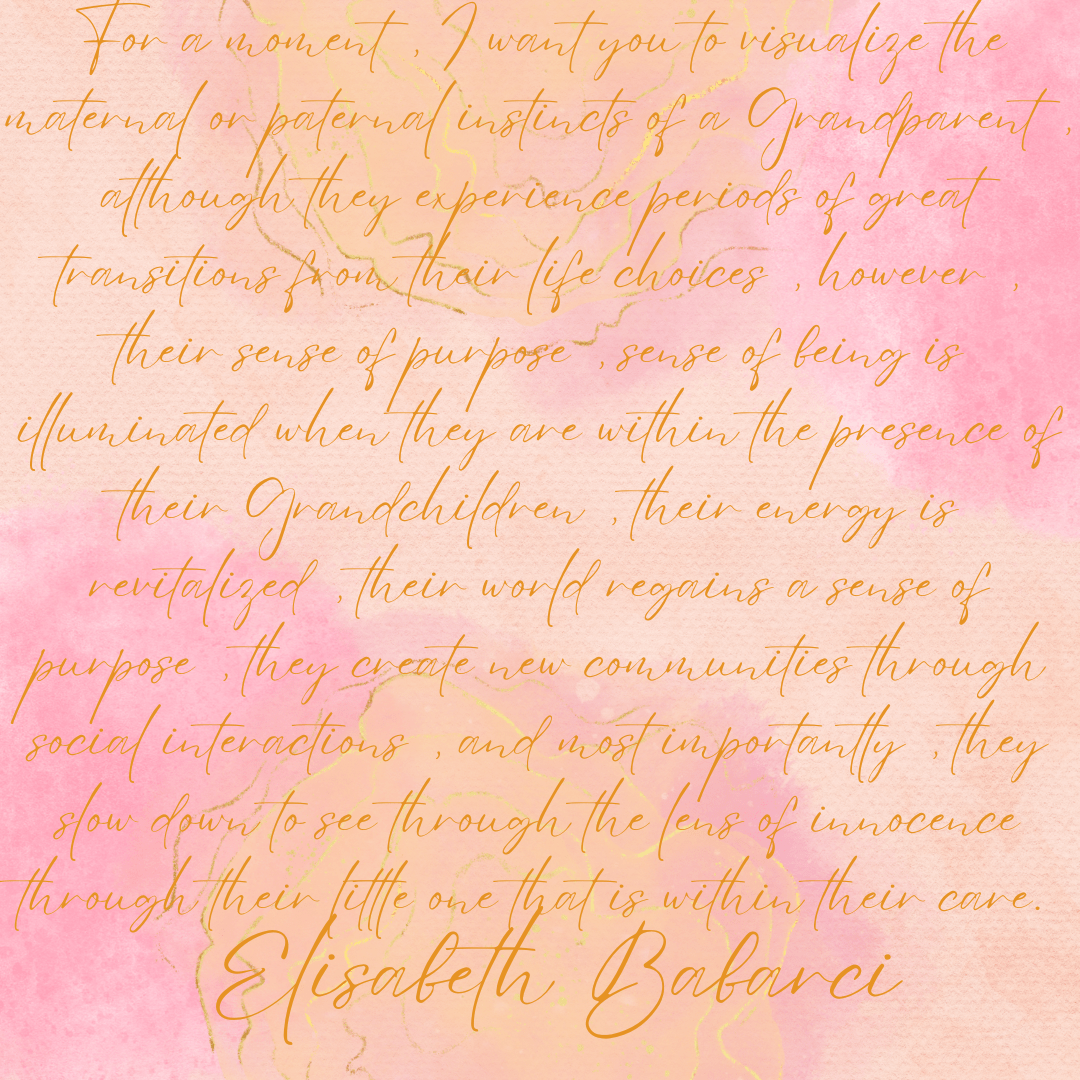 For a moment , I want you to visualize the
maternal or paternal instincts of a Grandparent ,
although they experience periods of great
transitions from their life choices , however ,
their sense of purpose , sense of being is
illuminated when they are within the presence of
their Grandchildren , their energy is
revitalized , their world regains a sense of
purpose , they create new communities through
social interactions , and most importantly , they
slow down to see through the lens of innocence
through their little one that is within their care.
Elisabeth Babarci